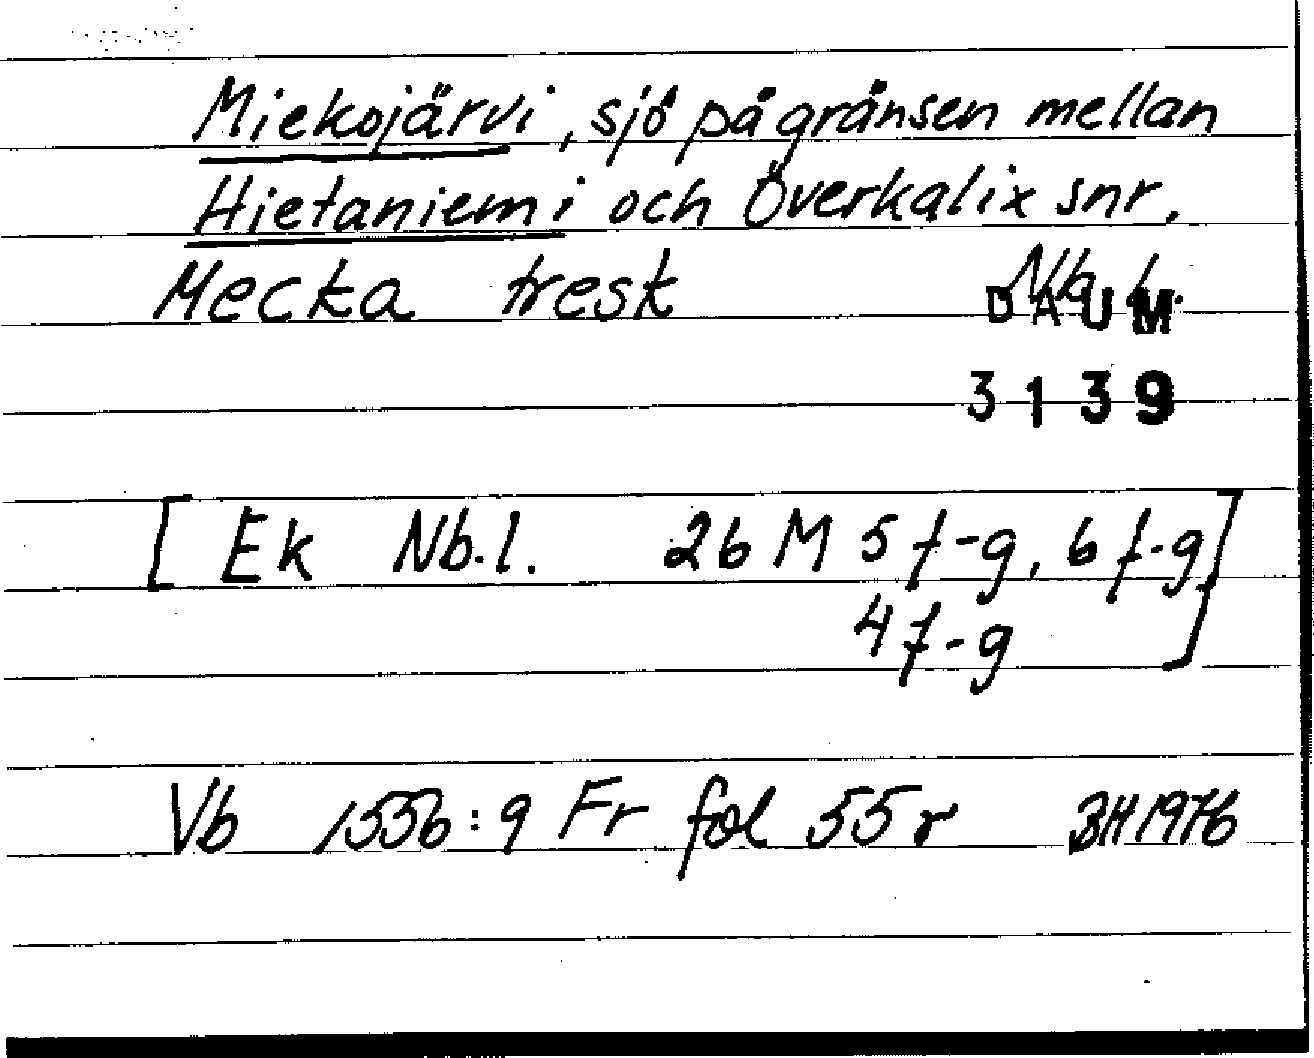 Miekojärvi, sjö på gränsen mellan
Hietaniemi och Överkalix snr.
Mecka tresk Nb.l.
DAUM
3139
[Ek Nb.l. 26 M 5 f-g, 6 f-g
4 f-g]
Vb 1556:9 Fr fol 55 r BH 1976